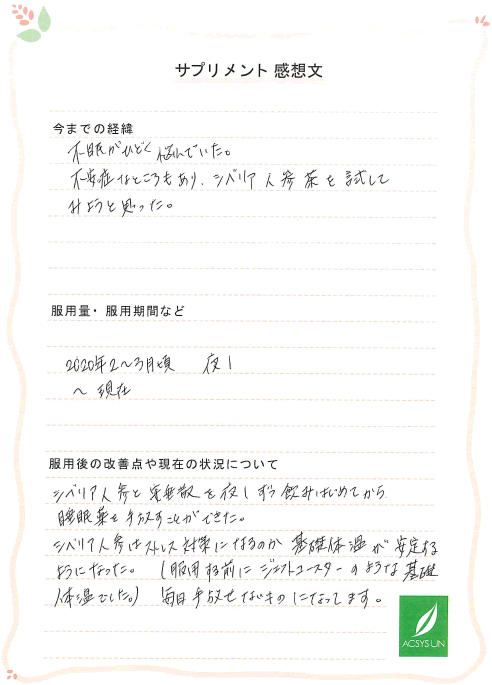 サプリメント 感想文
今までの経緯
不眠がひどく悩んでいた。
不安症なところもあり、シベリア人参茶を試して
みようと思った。
服用量・服用期間など
2020年2〜3月頃 夜1
〜現在
服用後の改善点や現在の状況について
シベリア人参と 散を夜1ずつ飲みはじめてから
睡眠薬を手放すことができた。
シベリア人参はストレス対策になるのか 基礎体温が安定する
ようになった。 (服用する前にジェットコースターのような基礎
体温でした。) 毎日手放せないものになってます。
ACSYS UN